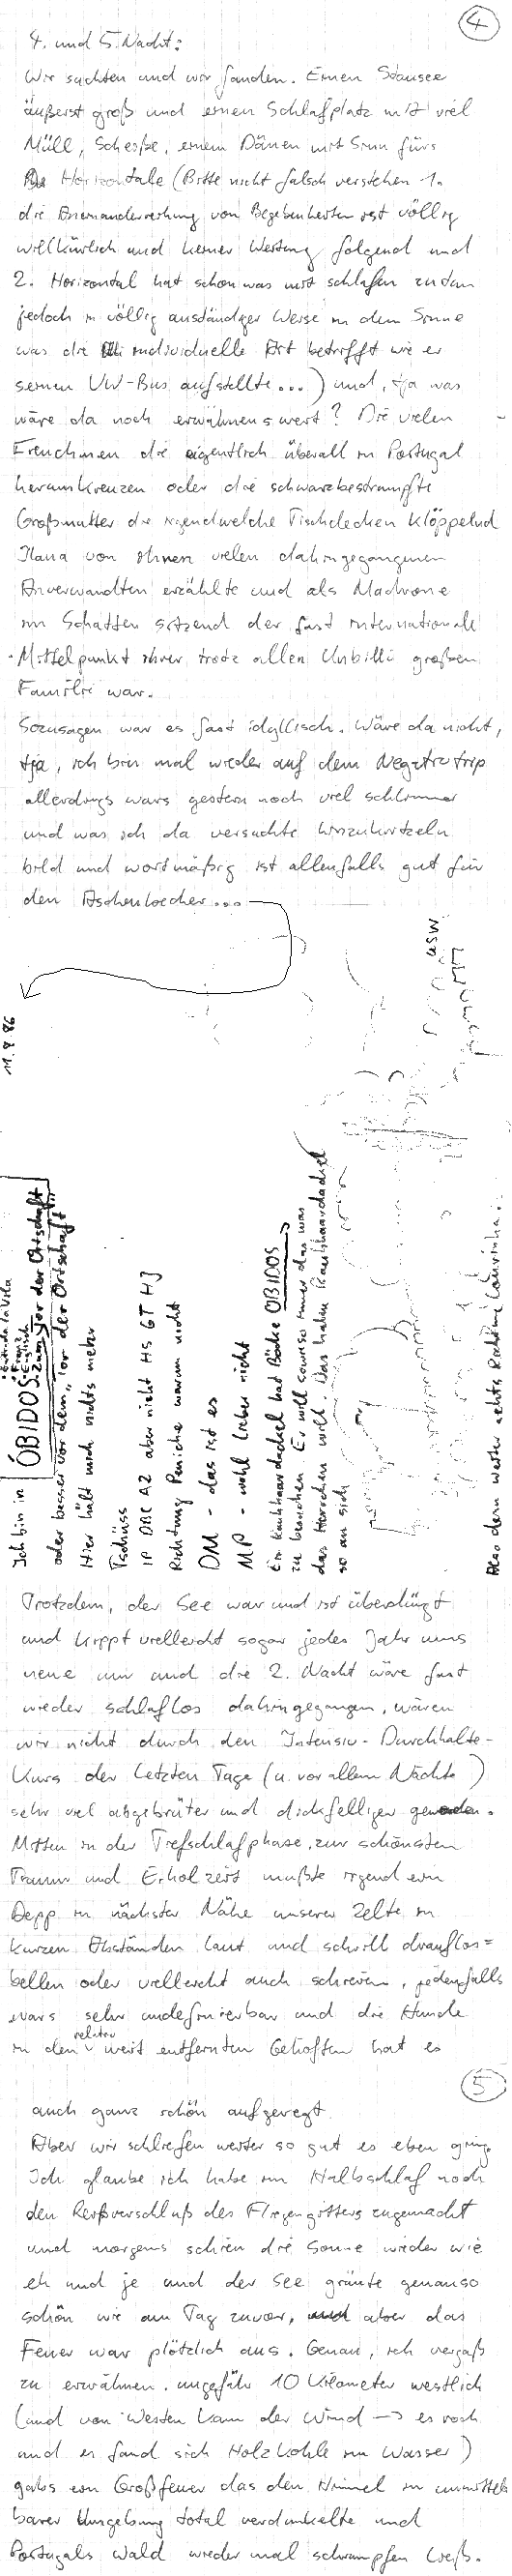 4
4. und 5. Nacht:
Wir suchten und wir fanden. Einen Stausee
äußerst groß und einen Schlafplatz mit viel
Müll, Scheiße, einem Dänen mit Sinn fürs
Horizontale (Bitte nicht falsch verstehen 1.
die Aneinanderreihung von Begebenheiten ist völlig
willkürlich und keiner Wertung folgend und
2. Horizontal hat schon was mit schlafen zu tun
jedoch in völlig anständiger Weise in dem Sinne
was die individuelle Art betrifft wie er
seinen VW-Bus aufstellte...) und, tja was
wäre da noch erwähnenswert? Die vielen
Frenchmen die eigentlich überall in Portugal
herumkreuzen oder die schwarzbestrumpfte
Großmutter die irgendwelche Tischdecken klöppelnd
Ilana von ihnen vielen dahingegangenen
Anverwandten erzählte und als Madrone
im Schatten sitzend der fast internationale
Mittelpunkt ihrer trotz allen Unbilli großen
Familie war.
Sozusagen war es fast idyllisch. Wäre da nicht,
tja, ich bin mal wieder auf dem Negativtrip
allerdings wars gestern noch viel schlimmer
und was ich da versuchte hinzukritzeln
bild und wortmäßig ist allenfalls gut für
den Aschenbecher...
usw
11.8.86
Ich bin in ÓBIDOS
zum Vor der Ortschaft
oder besser vor dem "vor der Ortschaft"
Hier hält mich nichts mehr
Tschüss
IP DBC AZ aber nicht HS GT HJ
Richtung Peniche warum nicht
DM - das ist es
MP - wohl lieber nicht
Ein Rauhhaardackel hat Böcke ÓBIDOS
zu besuchen. Er will sowieso immer das was
das Herrchen will. Das haben Rauhhaardackel
so an sich
Also dann weiter rechts Richtung Lourinha.
Trotzdem, der See war und ist überdüngt
und kippt vielleicht sogar jedes Jahr ums
neue um und die 2. Nacht wäre fast
wieder schlaflos dahingegangen, wären
wir nicht durch den Intensiv-Durchhalte-
Kurs der letzten Tage (u. vor allem Nächte)
sehr viel abgebrüter und dickfelliger geworden.
Mitten in der Tiefschlafphase, zur schönsten
Traum und Erholzeit mußte irgend ein
Depp in nächster Nähe unserer Zelte in
kurzen Abständen laut und schrill drauflos=
bellen oder vielleicht auch schreien, jedenfalls
wars sehr undefinierbar und die Hunde
in den relativ weit entfernten Gehöften hat es
5
auch ganz schön aufgeregt.
Aber wir schliefen weiter so gut es eben ging.
Ich glaube ich habe im Halbschlaf noch
den Reißverschluß des Fliegengitters zugemacht
und morgens schien die Sonne wieder wie
eh und je und der See grünte genauso
schön wie am Tag zuvor, aber das
Feuer war plötzlich aus. Genau, ich vergaß
zu erwähnen, ungefähr 10 Kilometer westlich
(und von Westen kam der Wind → es roch
und es fand sich Holzkohle im Wasser)
gabs ein Großfeuer das den Himmel in unmittel
barer Umgebung total verdunkelte und
Portugals Wald wieder mal schrumpfen ließ.